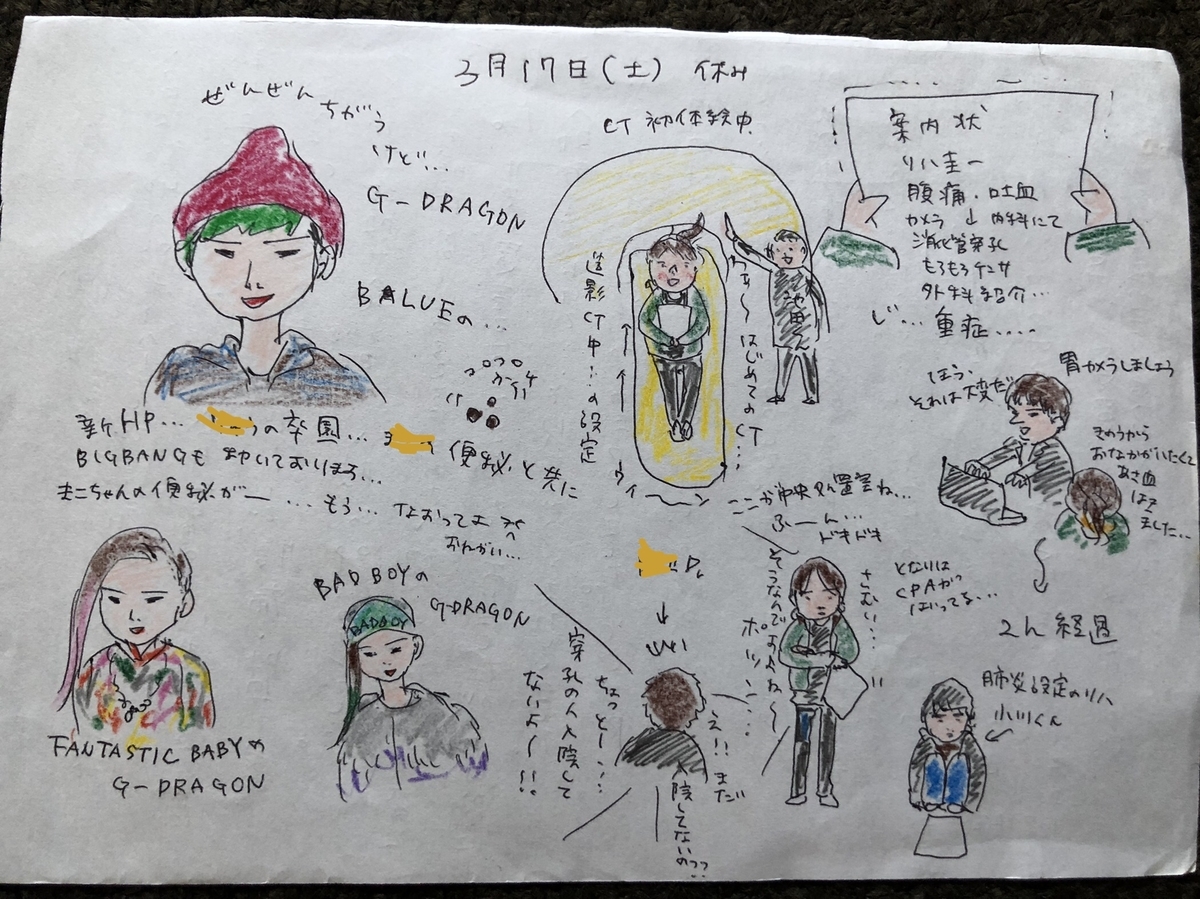 3月17日(土) 休み
ぜんぜん
ちがう
けど…
G-DRAGON
BALUEの…
新HP…
うの卒園…
便秘と共に
BIGBANGも
まこちゃんの便秘がー…もう…なおってよ
おねがい…
FANTASTIC BABYの
G-DRAGON
BAD BOYの
G-DRAGON
BADBOY
CT 初体験中
造影CT中…の設定
わぁ〜はじめてのCT…
池田くん
ウィーーン
案内状
リハ圭一
腹痛・吐血
カメラ ↓ 内科にて
消化管穿孔
もろもろケンサ
外科紹介…
じ…重症….
胃カメラしましょう
ほう、
それは大変だ
きのうから
おなかがいたくて
あさ血
はき
ました…
2h 経過
肺炎設定のリハ
小川くん
ここが中央処置室ね…
ふーん…
ドキドキ
さむい…
となりは
CPAが
はいってる…
そうなんですよね〜
ポツーン…
Dr
ちょっと…
穿孔の人入院して
ないよ〜!!
え!!まだ
入院してないの??